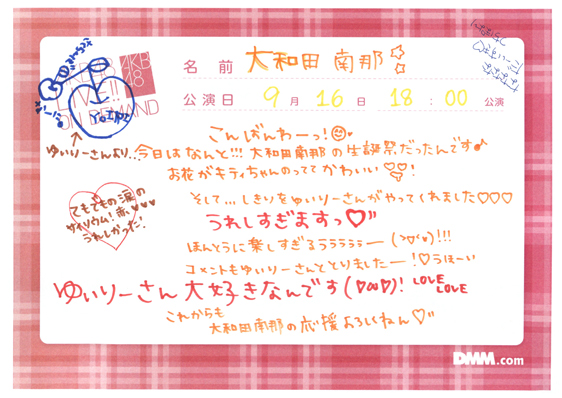 AKB48
LIVE!!
ON DEMAND
名前 大和田 南那
公演日 9月16日 18:00 公演
こんばんわーっ!
ゆいりーさんより...
今日はなんと!!! 大和田南那の生誕祭だったんです♪
お花がキティちゃんのっててかわいい♡♡!
そして...しきりをゆいりーさんがやってくれました♡♡♡
うれしすぎますっ♡"
でもでもの涙の
サイリウム!赤♥♥♥
うれしかった!
ほんとうに楽しすぎるぅぅぅぅぅー!!!
コメントもゆいりーさんととりましたー!♡うほーい
ゆいりーさん大好きなんです! LOVE
LOVE
これからも
大和田南那の応援よろしくねん♡"
DMM.com